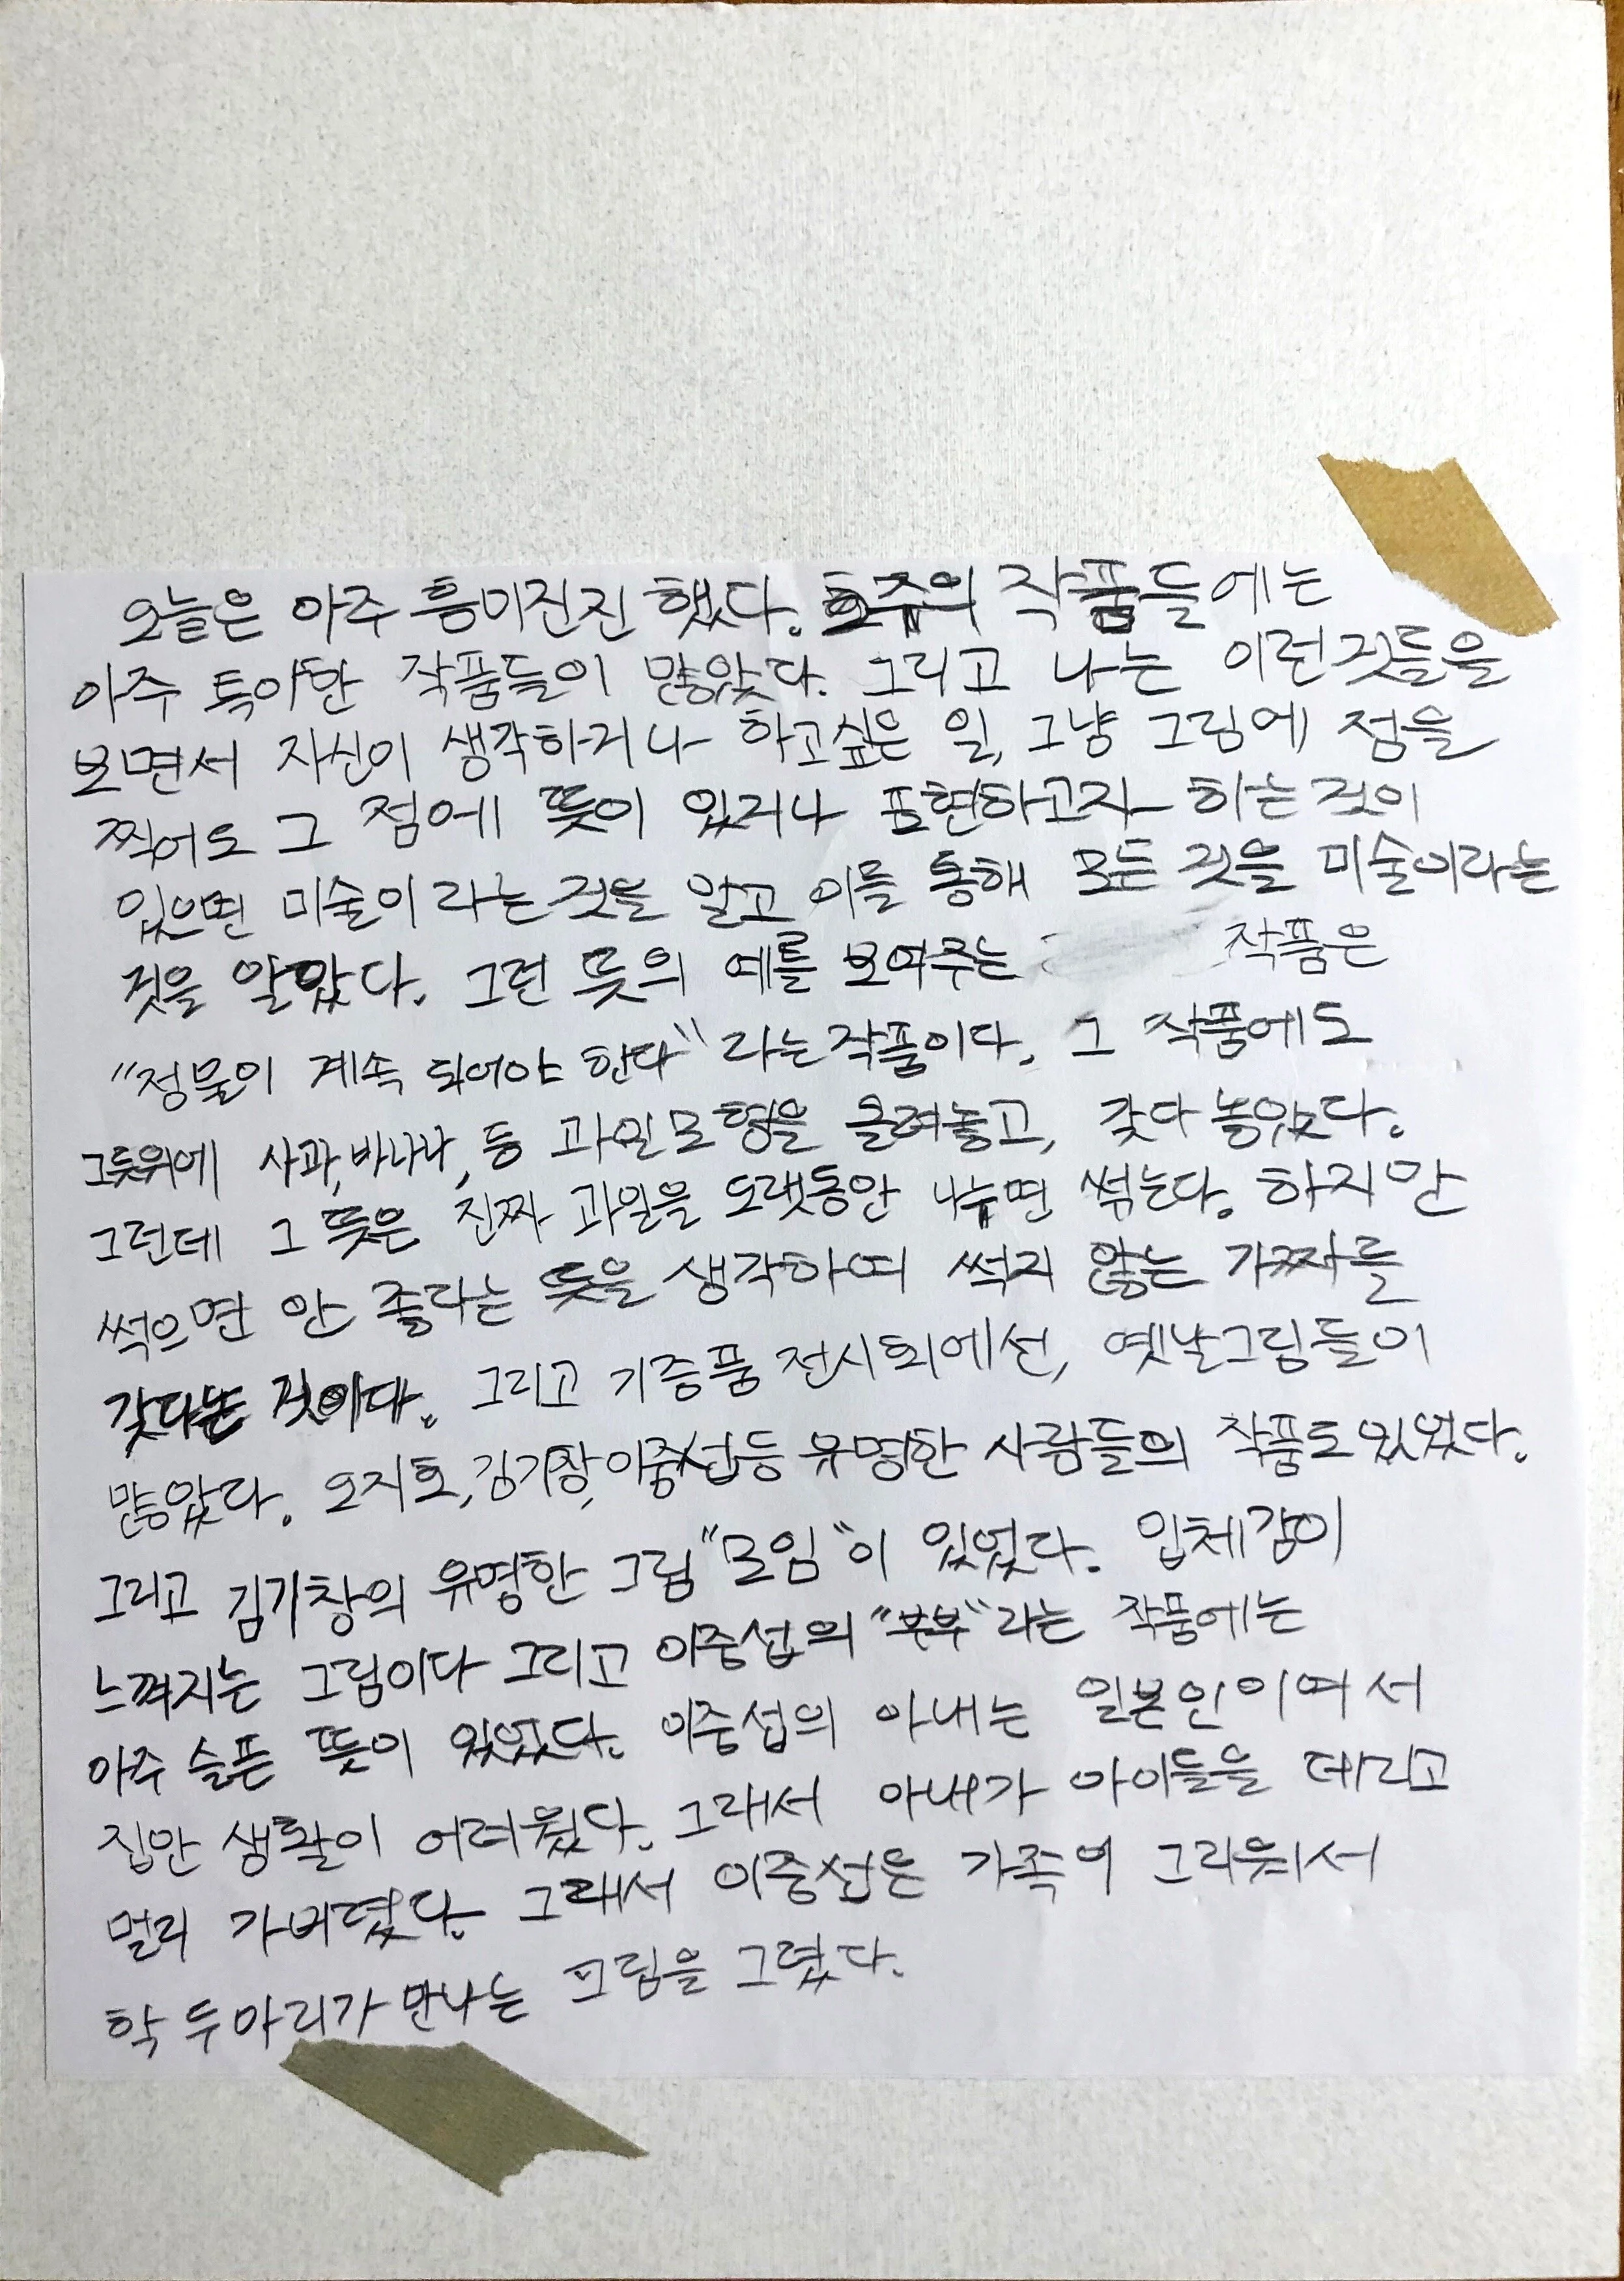 오늘은 아주 흥미진진 했다. 호주의 작품들에는
아주 특이한 작품들이 많았다. 그리고 나는 이런것들을
보면서 자신이 생각하거나 하고싶은 일, 그냥 그림에 점을
찍어도 그 점에 뜻이 있거나 표현하고자 하는 것이
있으면 미술이라는 것을 알고 이를 통해 모든 것을 미술이라는
것을 알았다. 그런 뜻의 예를 보여주는 작품은
"정물이 계속 되어야 한다"라는 작품이다. 그 작품에도
그릇위에 사과, 바나나, 등 과일모형을 올려놓고, 갖다 놓았다.
그런데 그 뜻은 진짜 과일을 오랫동안 나누면 썪는다. 하지만
썩으면 안 좋다는 뜻을 생각하여 썩지 않는 가짜를
갖다논 것이다. 그리고 기증품 전시회에선, 옛날그림들이
많았다. 오지호, 김기창, 이중섭등 유명한 사람들의 작품도있었다.
그리고 김기창의 유명한 그림 "모임"이 있었다. 입체감이
느껴지는 그림이다 그리고 이중섭의 "부부"라는 작품에는
아주 슬픈 뜻이 있었다. 이중섭의 아내는 일본인이여서
집안 생활이 어려웠다. 그래서 아내가 아이들을 데리고
멀리 가버렸다. 그래서 이중섭은 가족이 그리워서
학 두마리가 만나는 그림을 그렸다.